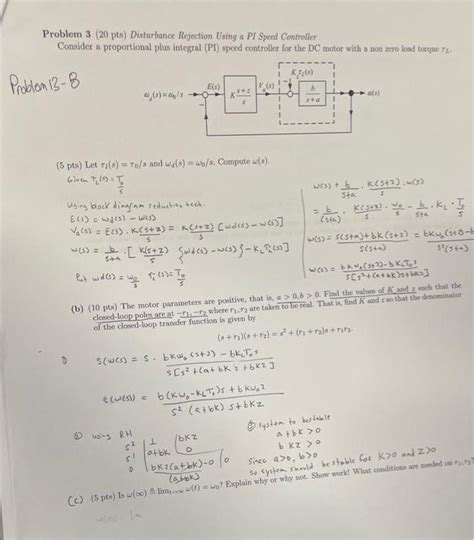 Problem 3 (20 pts) Disturbance Rejection Using a PI Speed Controller
Consider a proportional plus integral (PI) speed controller for the DC motor with a non zero load torque τL.
Problem 13-8
KLτL(s)
ωd(s) = ω0/s
E(s)
K (s+z)/s
Va(s)
b/(s+a)
ω(s)
(5 pts) Let τL(s) = τ0/s and ωd(s) = ω0/s. Compute ω(s).
Given τL(s) = T0/s
Using block diagram reduction tech.
E(s) = wd(s) - w(s)
V0(s) = E(s) . K(s+z)/s = K(s+z)/s [wd(s) - w(s)]
w(s) = b/(s+a) . [K(s+z)/s {wd(s) - w(s)} - KL τL(s)]
Put wd(s) = w0/s τL(s) = T0/s
w(s) + b/(s+a) . K(s+z)/s . w(s)
= b/(s+a) . K(s+z)/s . w0/s - b/(s+a) . KL . T0/s
w(s) = s(s+a) + bK(s+z)/s(s+a) =
w(s) = bKw0(s+z) - bKLT0s / s[s²+(a+bK)s+bKz]
(b) (10 pts) The motor parameters are positive, that is, a > 0, b > 0. Find the values of K and z such that the
closed-loop poles are at −r1, −r2 where r1, r2 are taken to be real. That is, find K and z so that the denominator
of the closed-loop transfer function is given by
(s + r1)(s + r2) = s² + (r1 + r2)s + r1r2.
① s(w(s)) = s . bKw0(s+z) - bKLT0s / s[s²+(a+bK)s+bKz]
s(w(s)) = b(Kw0-KLT0)s + bKw0z / s² (a+bK)s+bKz
② using RH
s² | 1 bKz
s¹ | a+bK 0
0 | bKz(a+bK)-0 / (a+bK) 0
① system to be stable
a+bK > 0
bKz > 0
since a>0, b>0
so system should be stable for K>0 and z>0
(c) (5 pts) Is ω(∞) ≜ lim t→∞ ω(t) = ω0? Explain why or why not. Show work! What conditions are needed on r1, r2?